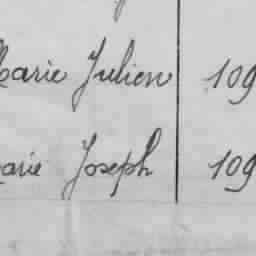 Marie Julien 109
Marie Joseph 109